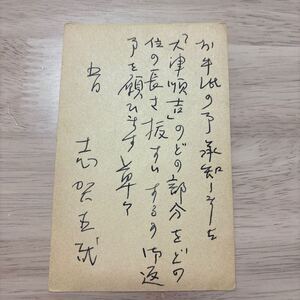 お手紙の事承知しました
「大津順吉」のどの部分をどの
位の長さ抜すいするか御返
事を願ひます 草々
志賀直哉